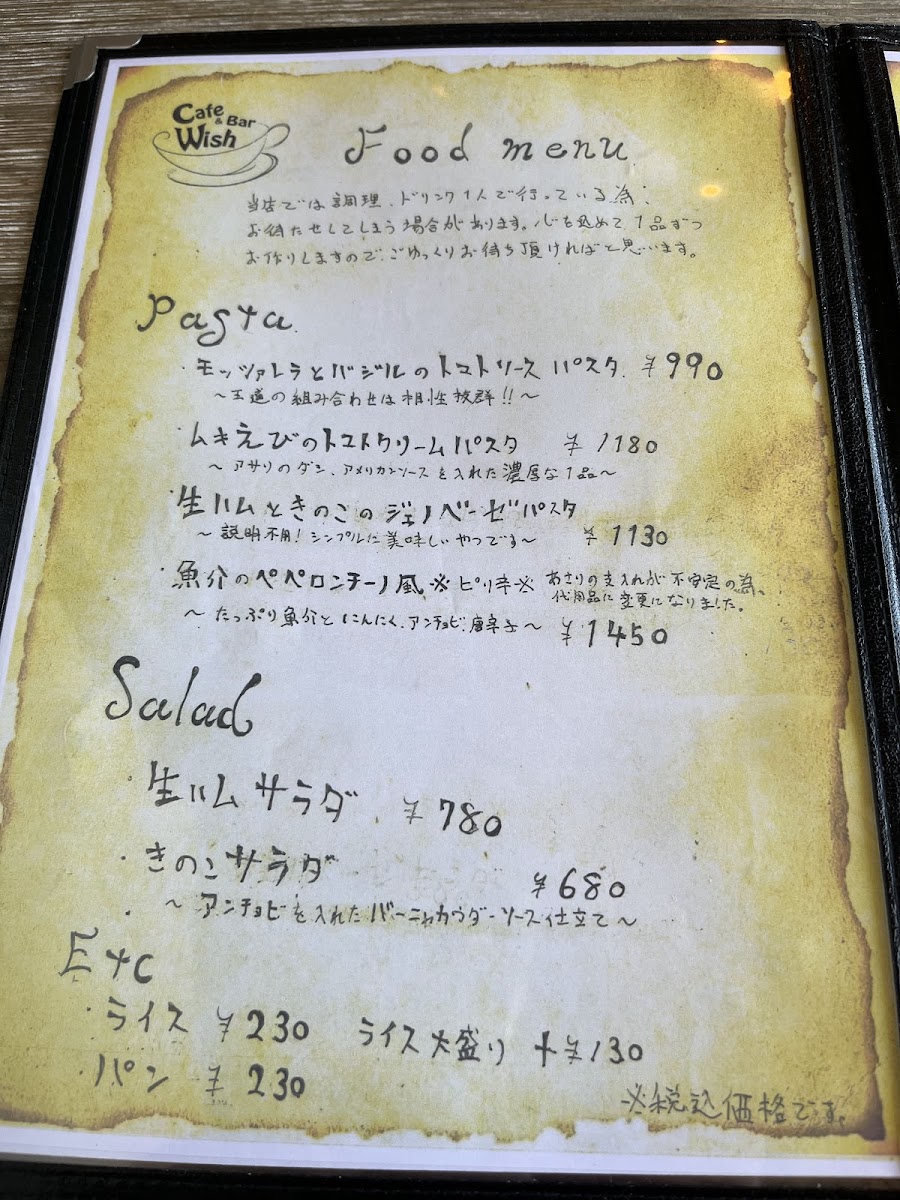 Cafe
& Bar
Wish
Food menu
当店では調理、ドリンク1人で行っている為、
お待たせしてしまう場合があります。心を込めて1品ずつ
お作りしますので、ごゆっくりお待ち頂ければと思います。
Pasta
・モッツァレラとバジルのトマトソースパスタ ¥990
～王道の組み合わせは相性抜群!!～
ムキえびのトマトクリームパスタ ¥1180
～アサリのダシ、アメリカンソースを入れた濃厚な1品～
生ハムときのこのジェノベーゼパスタ
～説明不用!シンプルに美味しいやつです～ ¥1130
魚介のペペロンチーノ風※ピリ辛※ あさりの支入れが不安定の為、
代用品に変更になりました。
～たっぷり魚介とにんにく、アンチョビ、唐辛子～ ¥1450
Salad
・生ハムサラダ ¥780
・きのこサラダ ¥680
～アンチョビを入れたバーニャカウダーソース仕立て～
Etc
・ライス ¥230 ライス大盛り +¥130
・パン ¥230
※税込価格です。